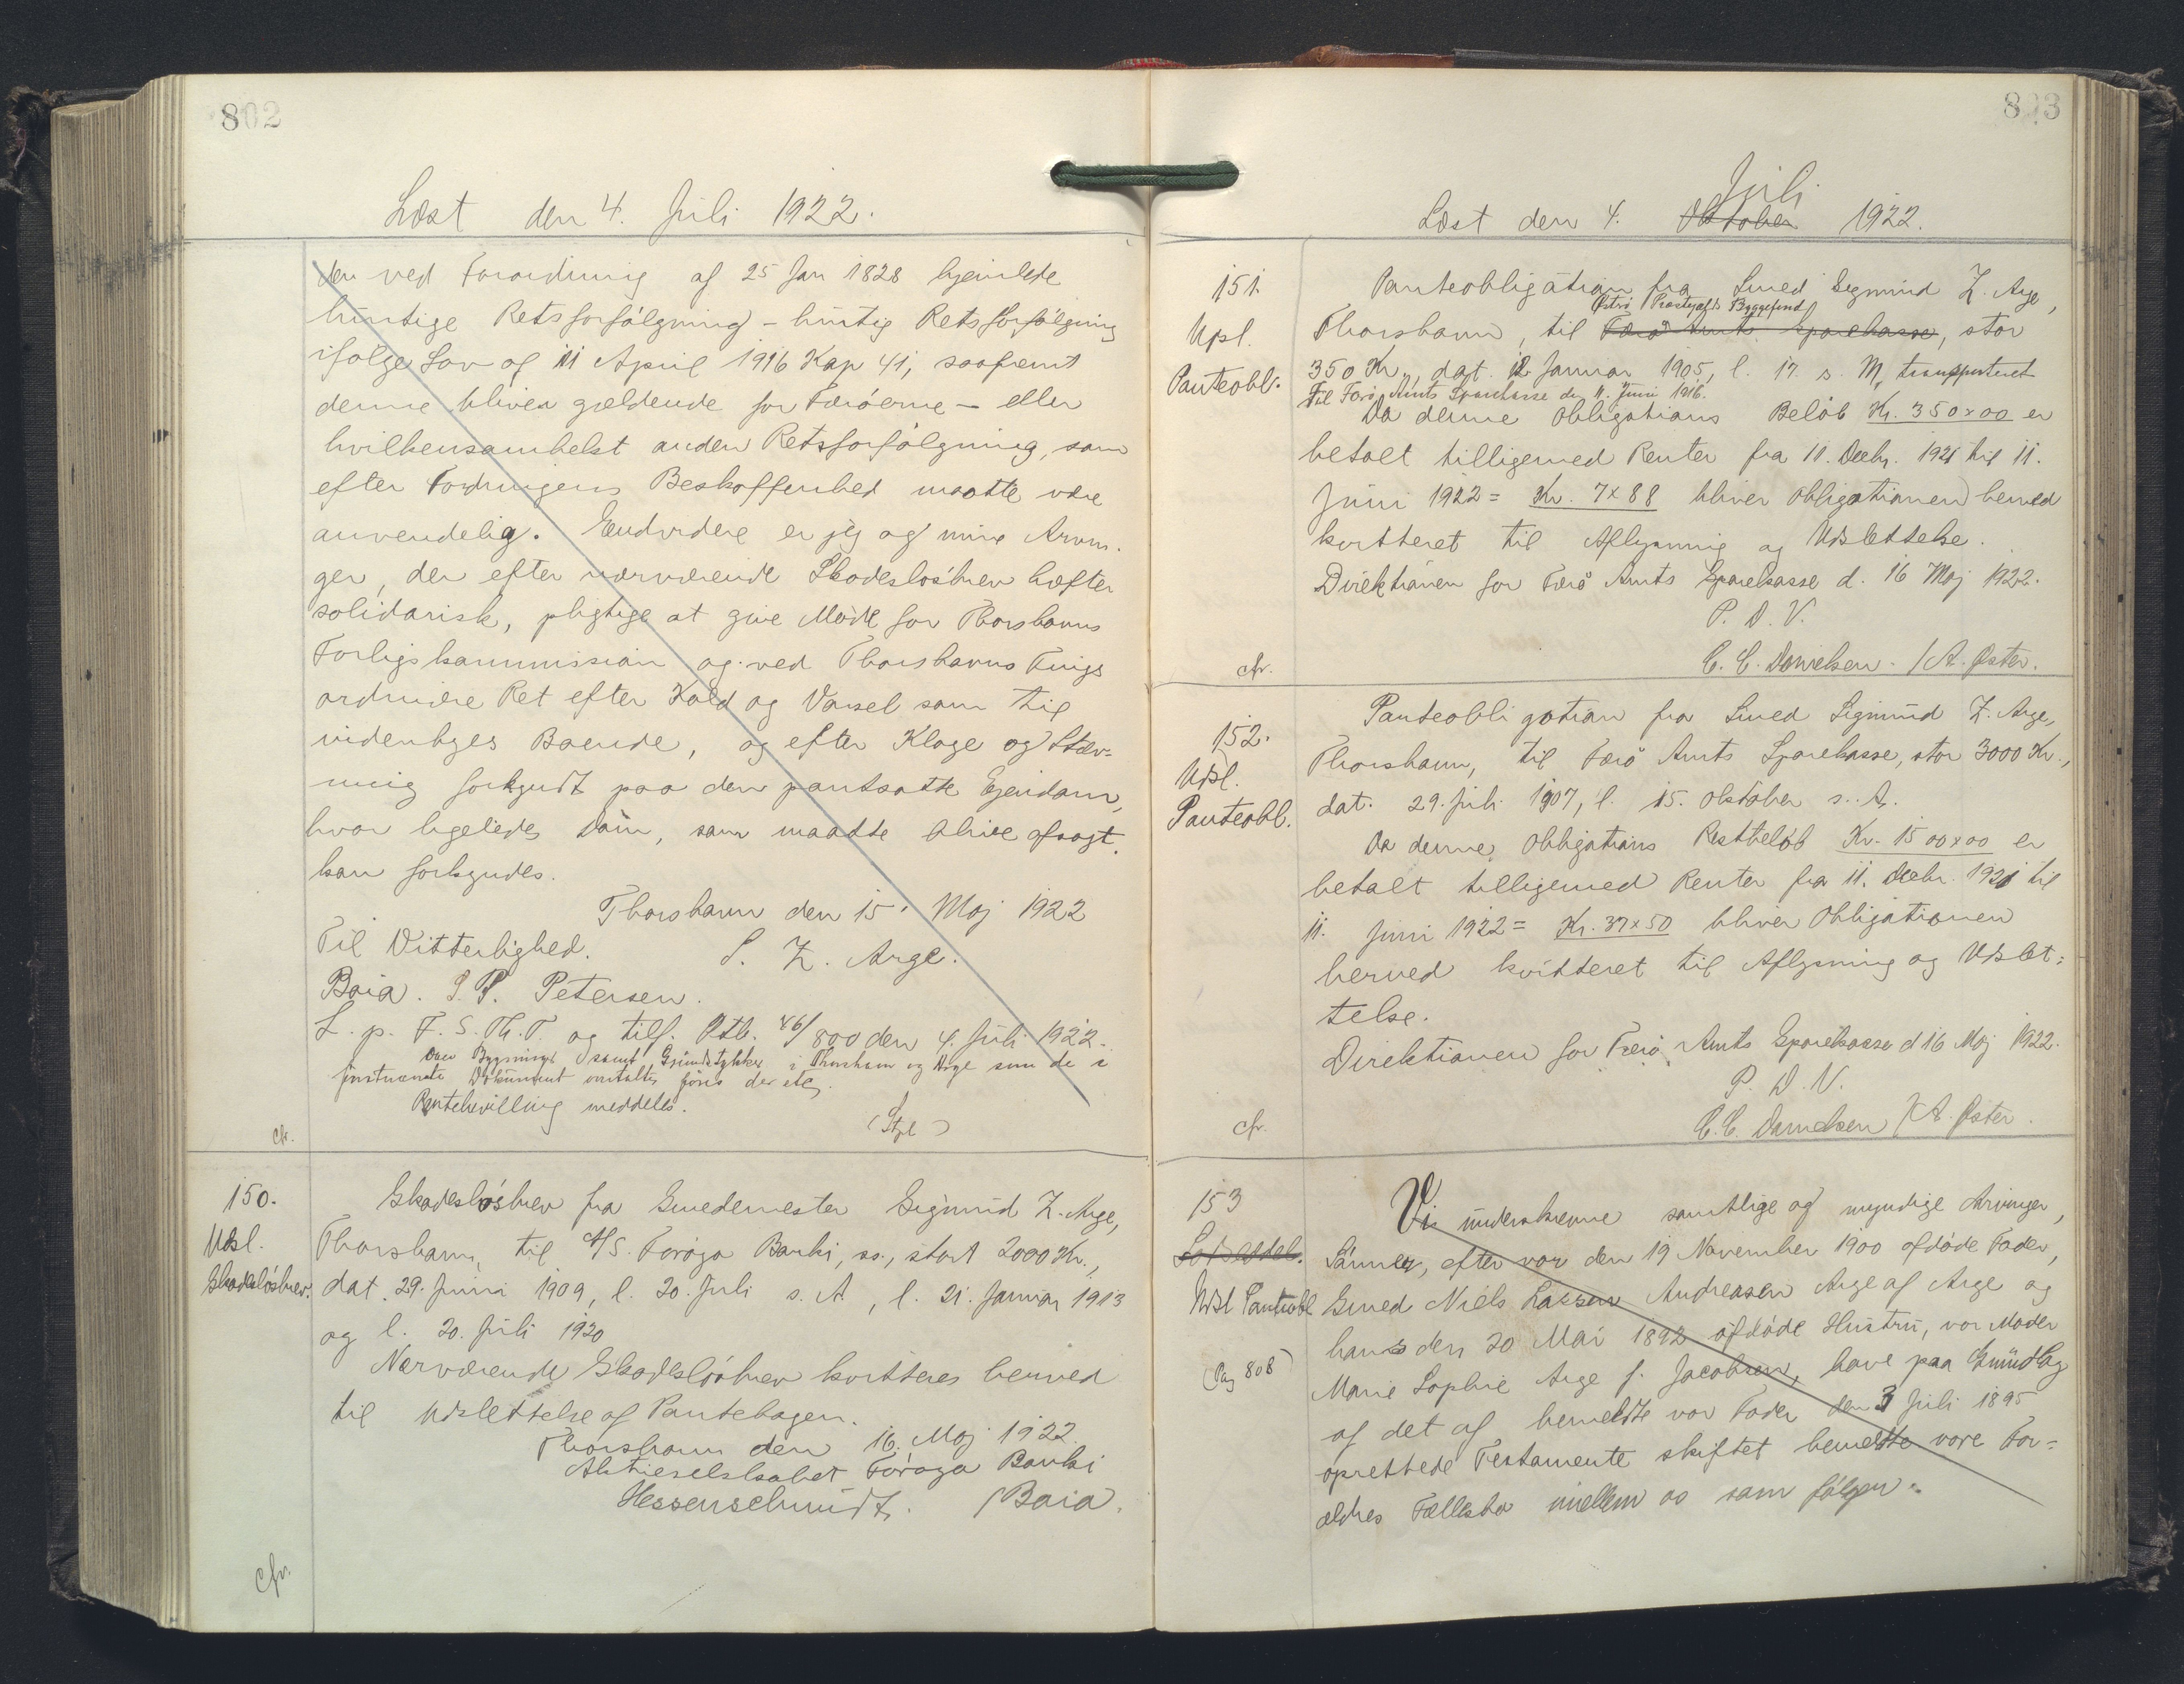 802
Læst den 4. Juli 1922.
den ved Forordning af 25 Jan 1828 hjemlede
hurtige Retsforfølgning - hurtig Retsforfølgning
ifølge Lov af 11 April 1916 Kap 41, saafremt
denne bliver gældende for Færøerne - eller
hvilkensomhelst anden Retsforfølgning, som
efter Fordringens Beskaffenhed maatte være
anvendelig. Endvidere er jeg og mine Arvin-
ger, der efter nærværende Skadesløsbrev hæfter
solidarisk, pligtige at give Møde for Thorshavns
Forligskommission og ved Thorshavns Tings
ordinære Ret efter Kald og Varsel som til
videnbyes Boende, og efter Klage og Stæv-
ning forkyndt paa den pantsatte Ejendom,
hvor ligeledes Dom, som maatte blive afsagt,
kan forkyndes.
Thorshavn den 15. Maj 1922
Til Vitterlighed. S. Z. Arge.
Baia. J. P. Petersen.
L. p. F. S. Th. T. og tilf. Ptb. 46/800 den 4. Juli 1922.
Den Bygninger samt Grundstykker i Thorshavn og Arge som de i
foranstaaende Dokument omtalte føres der etc.
Pantebevilling meddeles.
(Stpl)
cfr.
150.
Udsl.
Skadesløsbrev.
Skadesløsbrev fra Smedemester Sigmund Z. Arge,
Thorshavn, til A/S. Føroya Banki, ss., stort 2000 Kr.,
dat. 29. Juni 1909, l. 20. Juli s. A, l. 21. Januar 1913
og l. 20. Juli 1920
Nærværende Skadesløsbrev kvitteres herved
til Udslettelse af Pantebogen.
Thorshavn den 16. Maj 1922.
Aktieselskabet Føroya Banki
Hessenschmidt. /Baia.
cfr.
803
Juli
Læst den 4. Oktober 1922.
151.
Udsl.
Panteobl.
Panteobligation fra Smed Sigmund Z. Arge,
Østrø Præstegælds Byggefond
Thorshavn, til Færø Amts Sparekasse, stor
350 Kr., dat. 12 Januar 1905, l. 17. s. M, transporteret
Til Færø Amts Sparekasse den 11. Juni 1916.
Da denne Obligations Beløb Kr. 350x00 er
betalt tilligemed Renter fra 11. Decbr. 1921 til 11.
Juni 1922 = Kr. 7x88 bliver Obligationen herved
kvitteret til Aflysning og Udslettelse.
Direktionen for Færø Amts Sparekasse d. 16 Maj 1922.
P. D. V.
C. C. Danielsen. /A. Øster.
cfr.
152.
Udsl.
Panteobl.
Panteobligation fra Smed Sigmund Z. Arge,
Thorshavn, til Færø Amts Sparekasse, stor 3000 Kr.,
dat. 29. Juli 1907, l. 15. Oktober s. A.
Da denne Obligations Restbeløb Kr. 1500x00 er
betalt tilligemed Renter fra 11. Decbr. 1921 til
11. Juni 1922 = Kr. 37x50 bliver Obligationen
herved kvitteret til Aflysning og Udslet-
telse.
Direktionen for Færø Amts Sparekasse d 16 Maj 1922.
P. D. V.
C. C. Danielsen /A. Øster.
cfr.
153
Udsl Panteobl
(Pag 808)
Vi underskrevne samtlige og myndige Arvinger,
Sønner, efter vor den 19 November 1900 afdøde Fader,
Smed Niels Lassen Andreasen Arge af Arge og
hans den 20 Mai 1892 afdøde Hustru, vor Moder
Marie Sophie Arge f. Jacobsen, have paa Grundlag
af det af bemeldte vor Fader den 3 Juli 1895
oprettede Testamente skiftet bemeldte vore For-
ældres Fællesbo imellem os som følger: